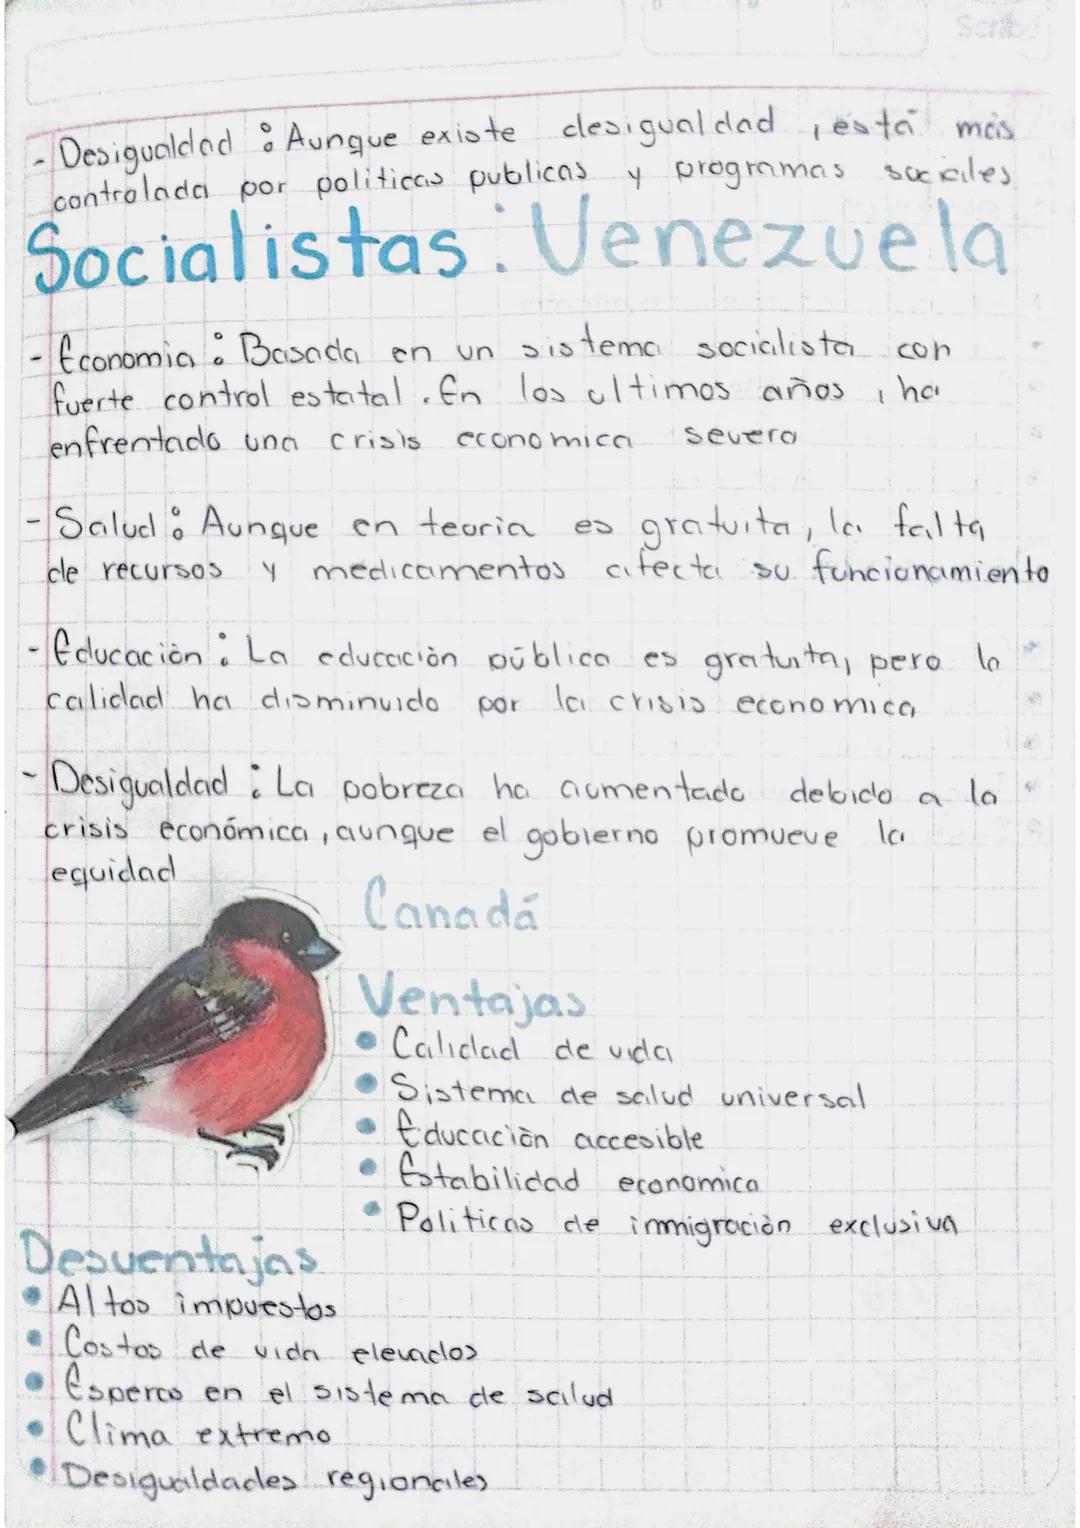 Scribe
- Desigualdad : Aunque existe desigualdad , está más
controlada por politicas publicas y programas sociales
Socialistas : Venezuela
- Economia : Basada en un sistema socialista con
fuerte control estatal . En los ultimos años , ha
enfrentado una crisis economica severa
- Salud : Aunque en teoria es gratuita , la falta
de recursos y medicamentos afecta su funcionamiento
- Educación : La educación pública es gratuita, pero la
calidad ha disminuido por la crisis economica
- Desigualdad : La pobreza ha aumentado debido a la
crisis económica , aunque el gobierno promueve la
equidad
Canadá
Ventajas
• Calidad de vida
• Sistema de salud universal
• Educación accesible
• Estabilidad economica
• Politicas de inmigración exclusiva
Desventajas
• Altos impuestos
• Costos de vida elevados
• Esperas en el sistema de salud
• Clima extremo
• Desigualdades regionales